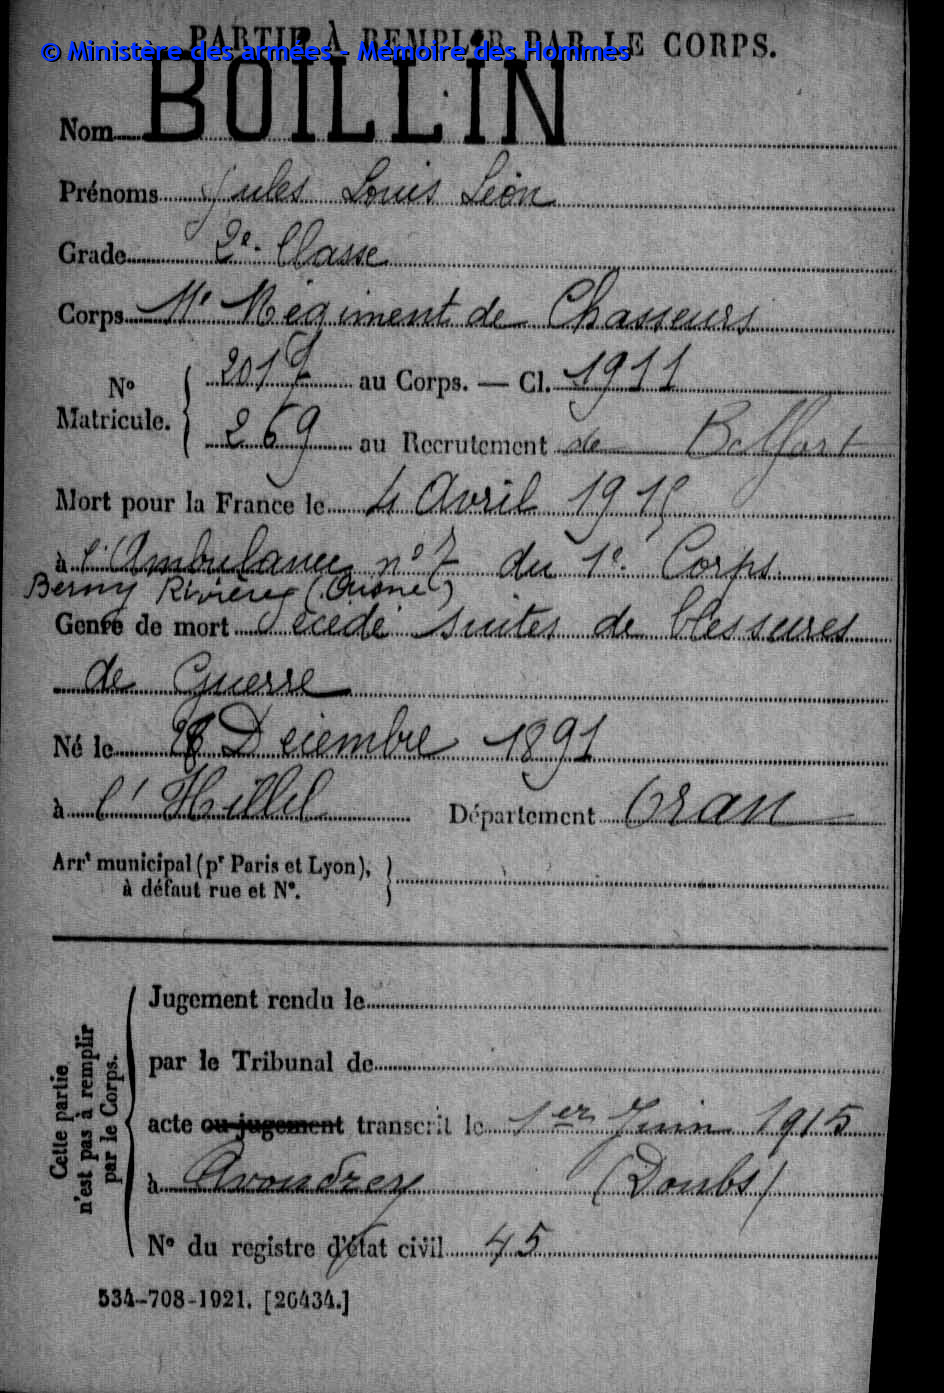 PARTIE À REMPLIR PAR LE CORPS.
© Ministère des armées - Mémoire des Hommes
Nom BOILLIN
Prénoms Jules Louis Léon
Grade 2e Classe
Corps 11e Régiment de Chasseurs
No Matricule. { 2017 au Corps. — Cl. 1911
269 au Recrutement de Belfort
Mort pour la France le 4 Avril 1915
à l'Ambulance no 7 du 1e Corps
Berny Rivière (Aisne)
Genre de mort Décédé suites de blessures
de Guerre
Né le Décembre 1891
à l'Hillil Département Oran
Arrt municipal (pr Paris et Lyon),
à défaut rue et No.
Jugement rendu le
par le Tribunal de
acte ou jugement transcrit le 1er Juin 1915
à Avoudrey (Doubs)
No du registre d'état civil 45
Cette partie
n'est pas à remplir
par le Corps.
534-708-1921. [26434.]